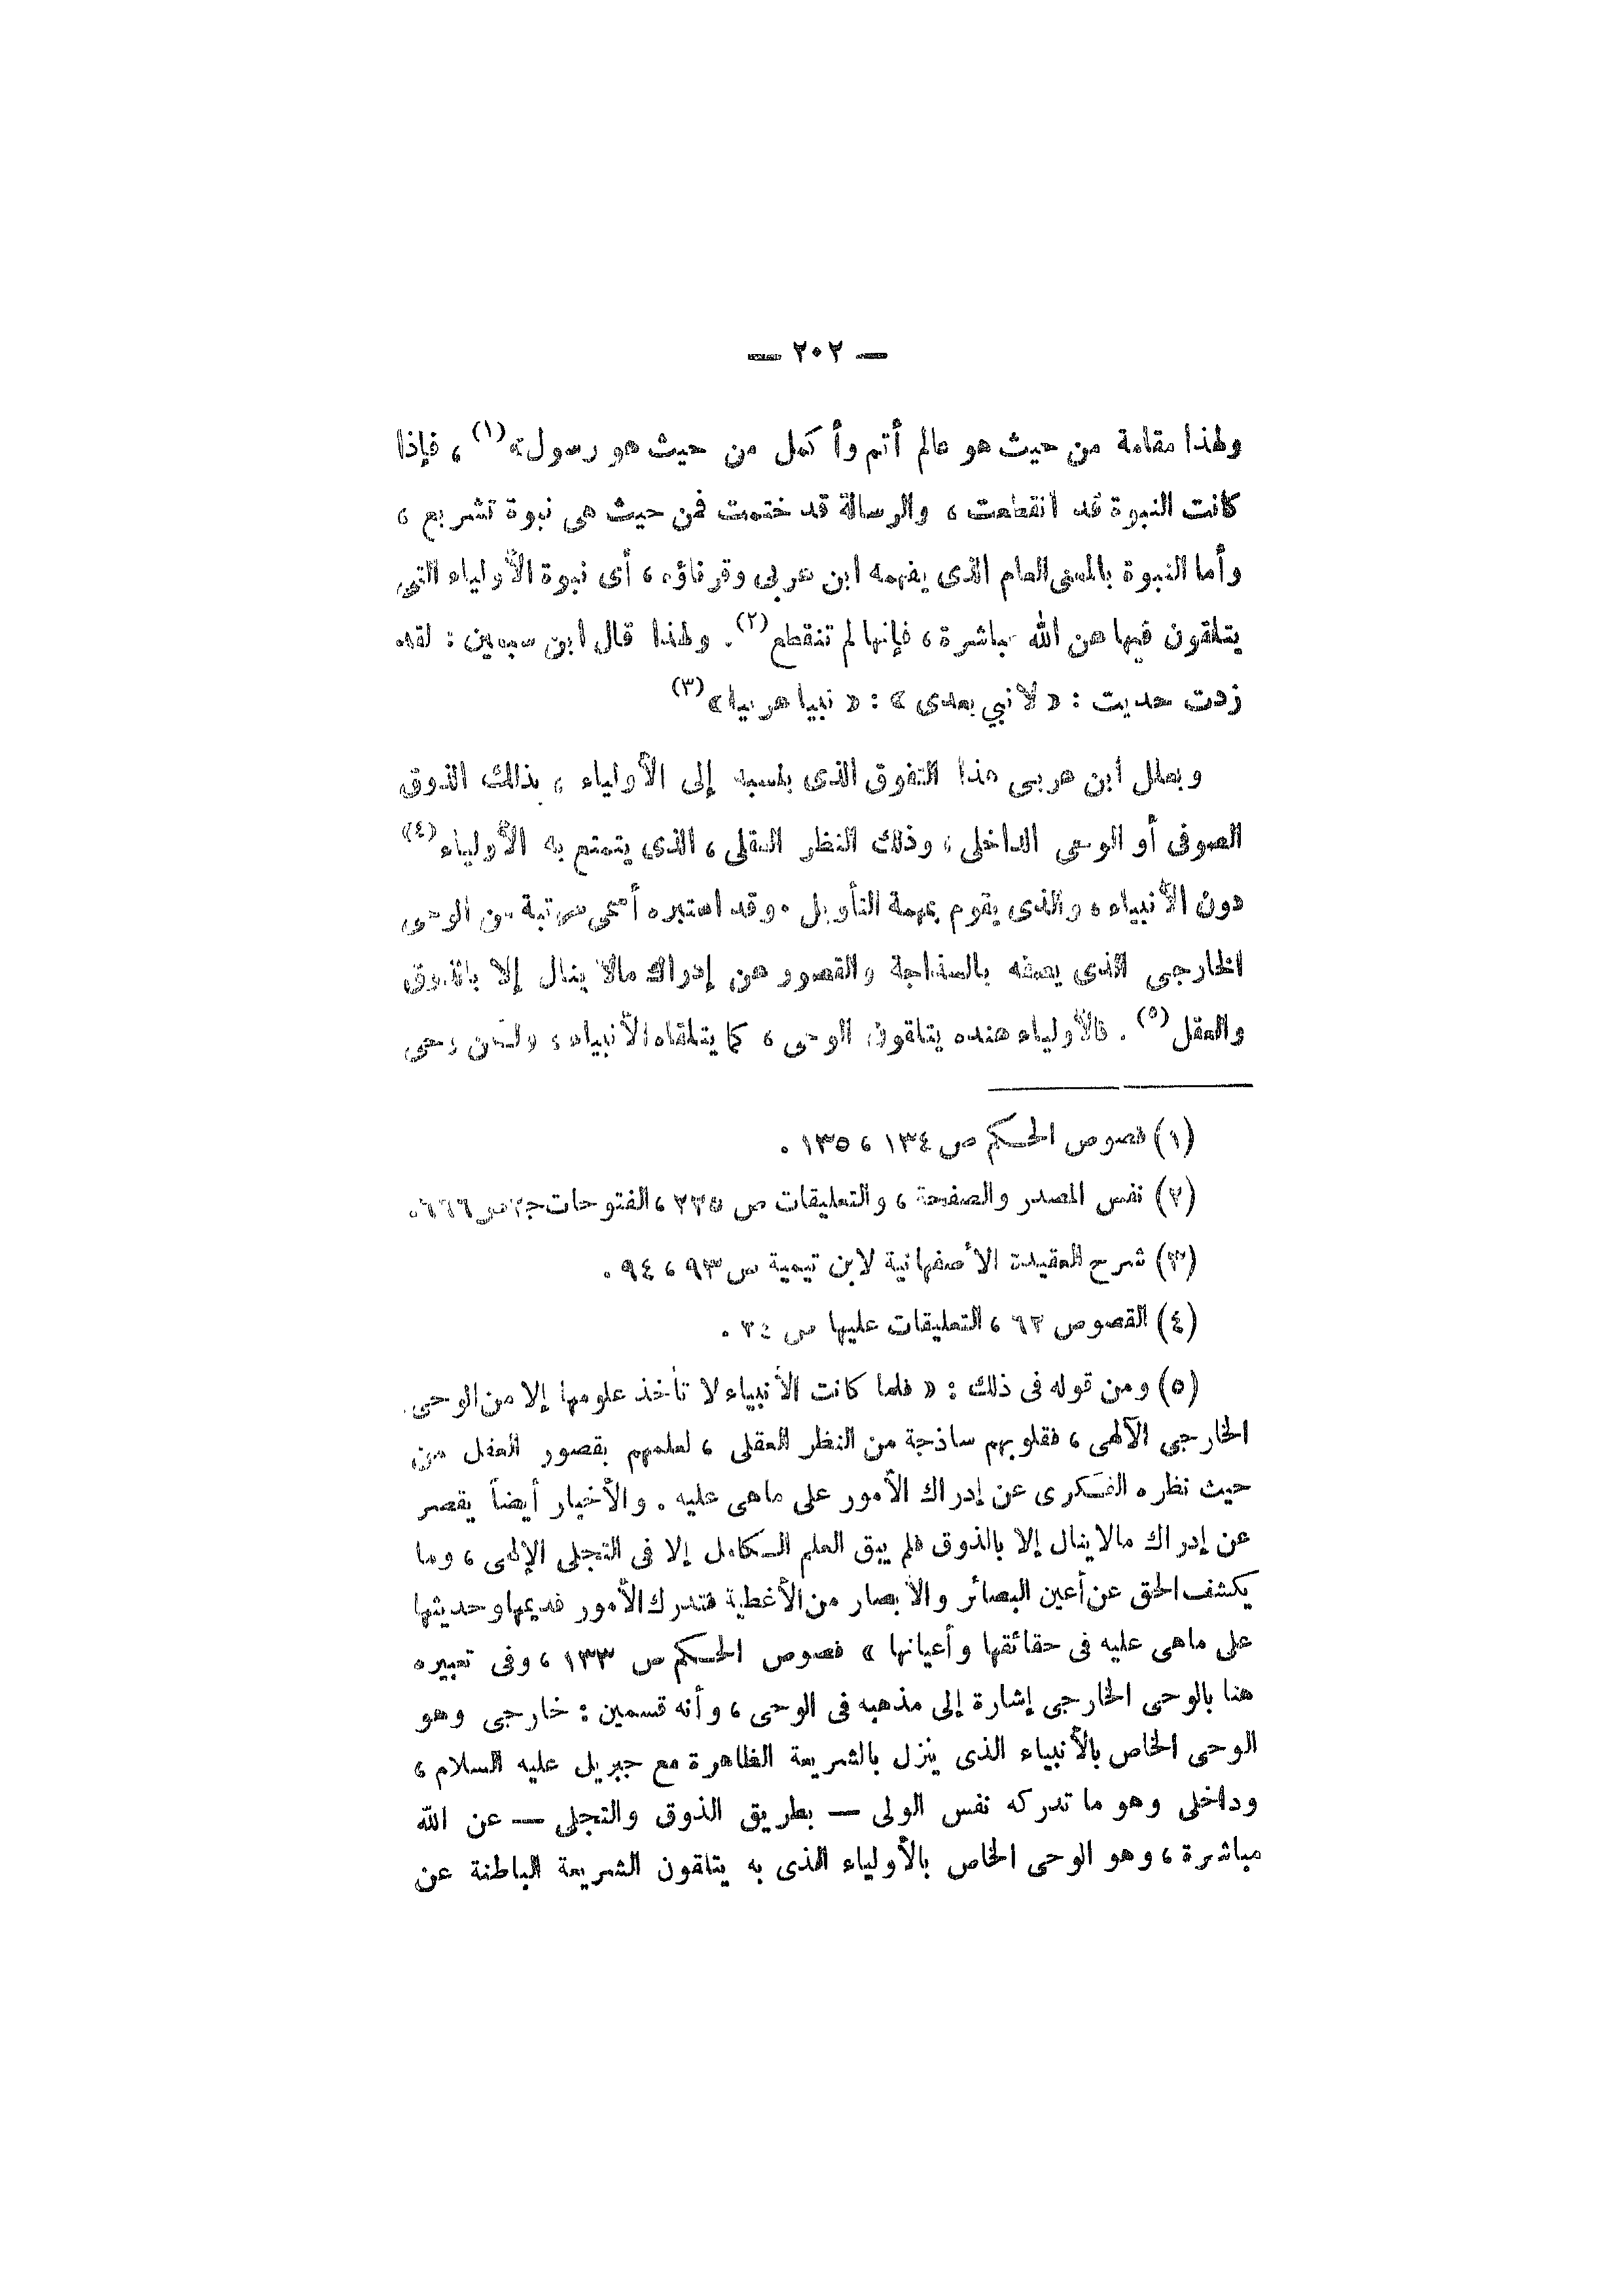 — ٢٠٢ —
ولهذا مقامة من حيث هو عالم أتم وأكمل من حيث هو رسول (١) ، فإذا
كانت النبوة قد انقطعت ، والرسالة قد ختمت فمن حيث هى نبوة تشريع ،
وأما النبوة بالمعنى العام الذى يفهمه ابن عربى وقرناؤه ، أى نبوة الأولياء التى
يتلقون فيها عن الله مباشرة ، فإنها لم تنقطع (٢) . ولهذا قال ابن سبعين : لقد
زدت حديث : « لا نبي بعدى » : « نبيا عربيا » (٣)
ويعلل ابن عربى هذا التفوق الذى ينسبه إلى الأولياء ، بذلك الذوق
الصوفى أو الوحى الداخلى ، وذلك النظر العقلى ، الذى يتمتع به الأولياء (٤)
دون الأنبياء ، والذى يقوم بمهمة التأويل . وقد اعتبره أسمى مرتبة من الوحى
الخارجى الذى يصفه بالسذاجة والقصور عن إدراك مالا ينال إلا بالذوق
والعقل (٥) . فالأولياء عنده يتلقون الوحى ، كما يتلقاه الأنبياء ، ولكن وحى
(١) فصوص الحكم ص ١٣٤ ، ١٣٥ .
(٢) نفس المصدر والصفحة ، والتعليقات ص ٢٣٥ ، الفتوحات ج ص ٦٦٦ .
(٣) شرح العقيدة الأصفهانية لابن تيمية ص ٩٣ ، ٩٤ .
(٤) القصوص ٦٢ ، التعليقات عليها ص ٢٤ .
(٥) ومن قوله فى ذلك : « فلما كانت الأنبياء لا تأخذ علومها إلا من الوحى
الخارجى الآلهى ، فقلوبهم ساذجة من النظر العقلى ، لعلمهم بقصور العقل من
حيث نظره الفكرى عن إدراك الأمور على ماهى عليه . والأخبار أيضاً يقصر
عن إدراك مالا ينال إلا بالذوق فلم يبق العلم الكامل إلا فى التجلى الإلهى ، وما
يكشف الحق عن أعين البصائر والأبصار من الأغطية فتدرك الأمور قديمها وحديثها
على ماهى عليه فى حقائقها وأعيانها » فصوص الحكم ص ١٣٣ ، وفى تعبيره
هنا بالوحى الخارجى إشارة إلى مذهبه فى الوحى ، وأنه قسمين : خارجى وهو
الوحى الخاص بالأنبياء الذى ينزل بالشريعة الظاهرة مع جبريل عليه السلام ،
وداخلى وهو ما تدركه نفس الولى — بطريق الذوق والتجلى — عن الله
مباشرة ، وهو الوحى الخاص بالأولياء الذى به يتلقون الشريعة الباطنة عن